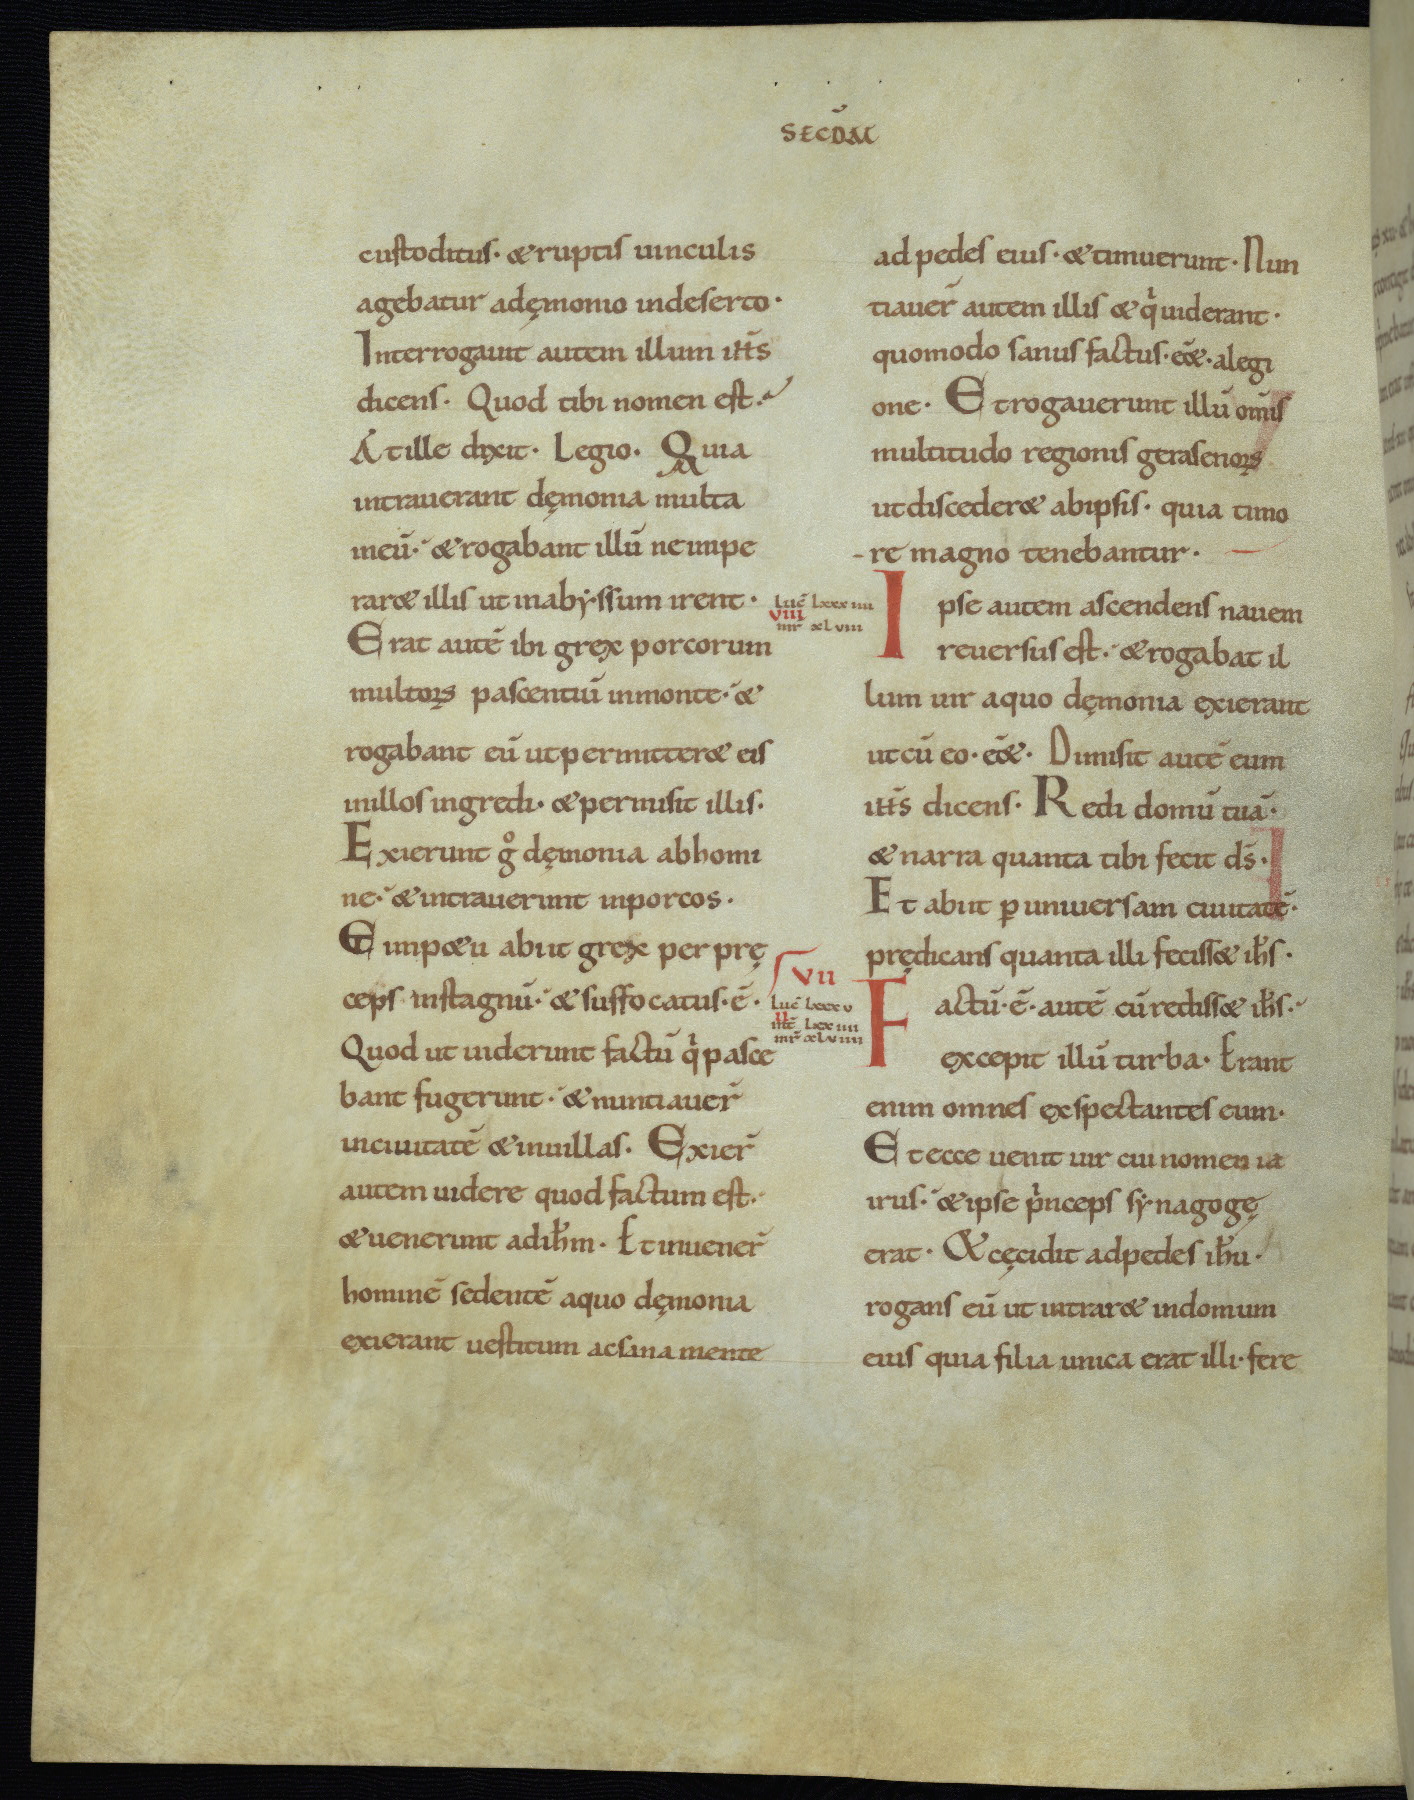 SECD̄M
custoditus· & ruptis uinculis
agebatur adęmonio indeserto·
Interrogauit autem illum ih̄s
dicens· Quod tibi nomen est·
At ille dixit· Legio· Quia
intrauerant dęmonia multa
ineū· & rogabant illū neimpe
rar& illis ut inabyssum irent·
Erat autē ibi grex porcorum
multoꝝ pascentiū inmonte· &
rogabant eū utpermitter& eis
inillos ingredi· & permisit illis·
Exierunt g̊ dęmonia abhomi
ne· & intrauerunt inporcos·
Et imp&u abiit grex per prę
ceps instagnū· & suffocatus· ē·
Quod ut uiderunt factū q̍ pasce
bant fugerunt· & nuntiauer̄
inciuitatē & inuillas· Exier̄
autem uidere quod factum est·
& uenerunt adih̄m· Et inuener̄
hominē sedentē aquo dęmonia
exierant uestitum acsana mente
ad pedes eius· & timuerunt· Nun
tiauer̄ autem illis & q̍ uiderant·
quomodo sanus factus· ēēt· alegi
one· Et rogauerunt illū om̄is
multitudo regionis gerasenoꝝ
utdisceder& abipsis· quia timo
re magno tenebantur·
luc̄ lxxxiiii
VIII
mr xlviii
Ipse autem ascendens nauem
reuersus est· & rogabat il
lum uir aquo dęmonia exierant
utcū eo· ēēt· Dimisit autē eum
ih̄s dicens· Redi domū tuā·
& narra quanta tibi fecit ds̄·
Et abiit ꝑ uniuersam ciuitatē·
prędicans quanta illi feciss& ih̄s·
VII
luc̄ lxxxv
II
mt̄ lxxiiii
mr̄ xlviiii
Factū· ē· autē cū rediss& ih̄s·
excepit illū turba· Erant
enim omnes exspectantes eum·
Et ecce uenit uir cui nomen ia
irus· & ipse p̍nceps synagogę
erat· & cęcidit adpedes ih̄u·
rogans eū ut intrar& indomum
eius quia filia unica erat illi· fere